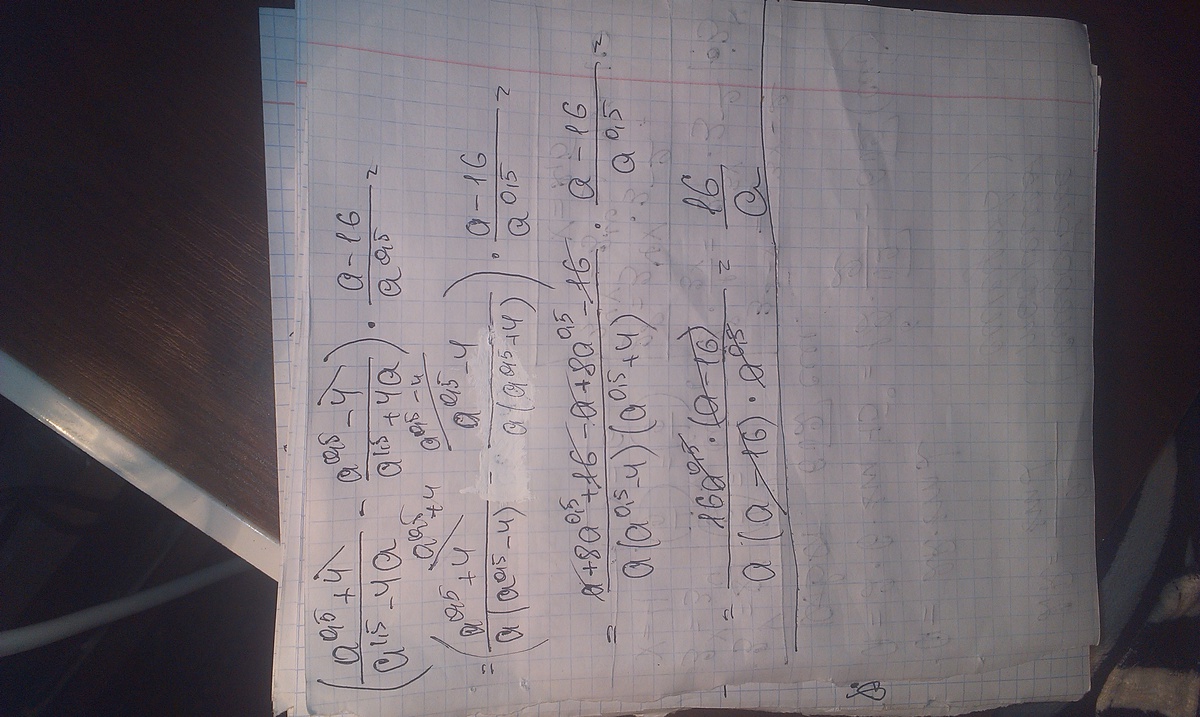 ( (a^0,5 + 4)/(a^1,5 - 4a) - (a^0,5 - 4)/(a^1,5 + 4a) ) · (a - 16)/a^0,5 =
a^0,5 + 4   a^0,5 - 4
= ( (a^0,5 + 4)/(a(a^0,5 - 4)) - (a^0,5 - 4)/(a(a^0,5 + 4)) ) · (a - 16)/a^0,5 =
= (a + 8a^0,5 + 16 - a + 8a^0,5 - 16)/(a(a^0,5 - 4)(a^0,5 + 4)) · (a - 16)/a^0,5 =
= (16a^0,5 · (a - 16))/(a(a - 16) · a^0,5) = 16/a